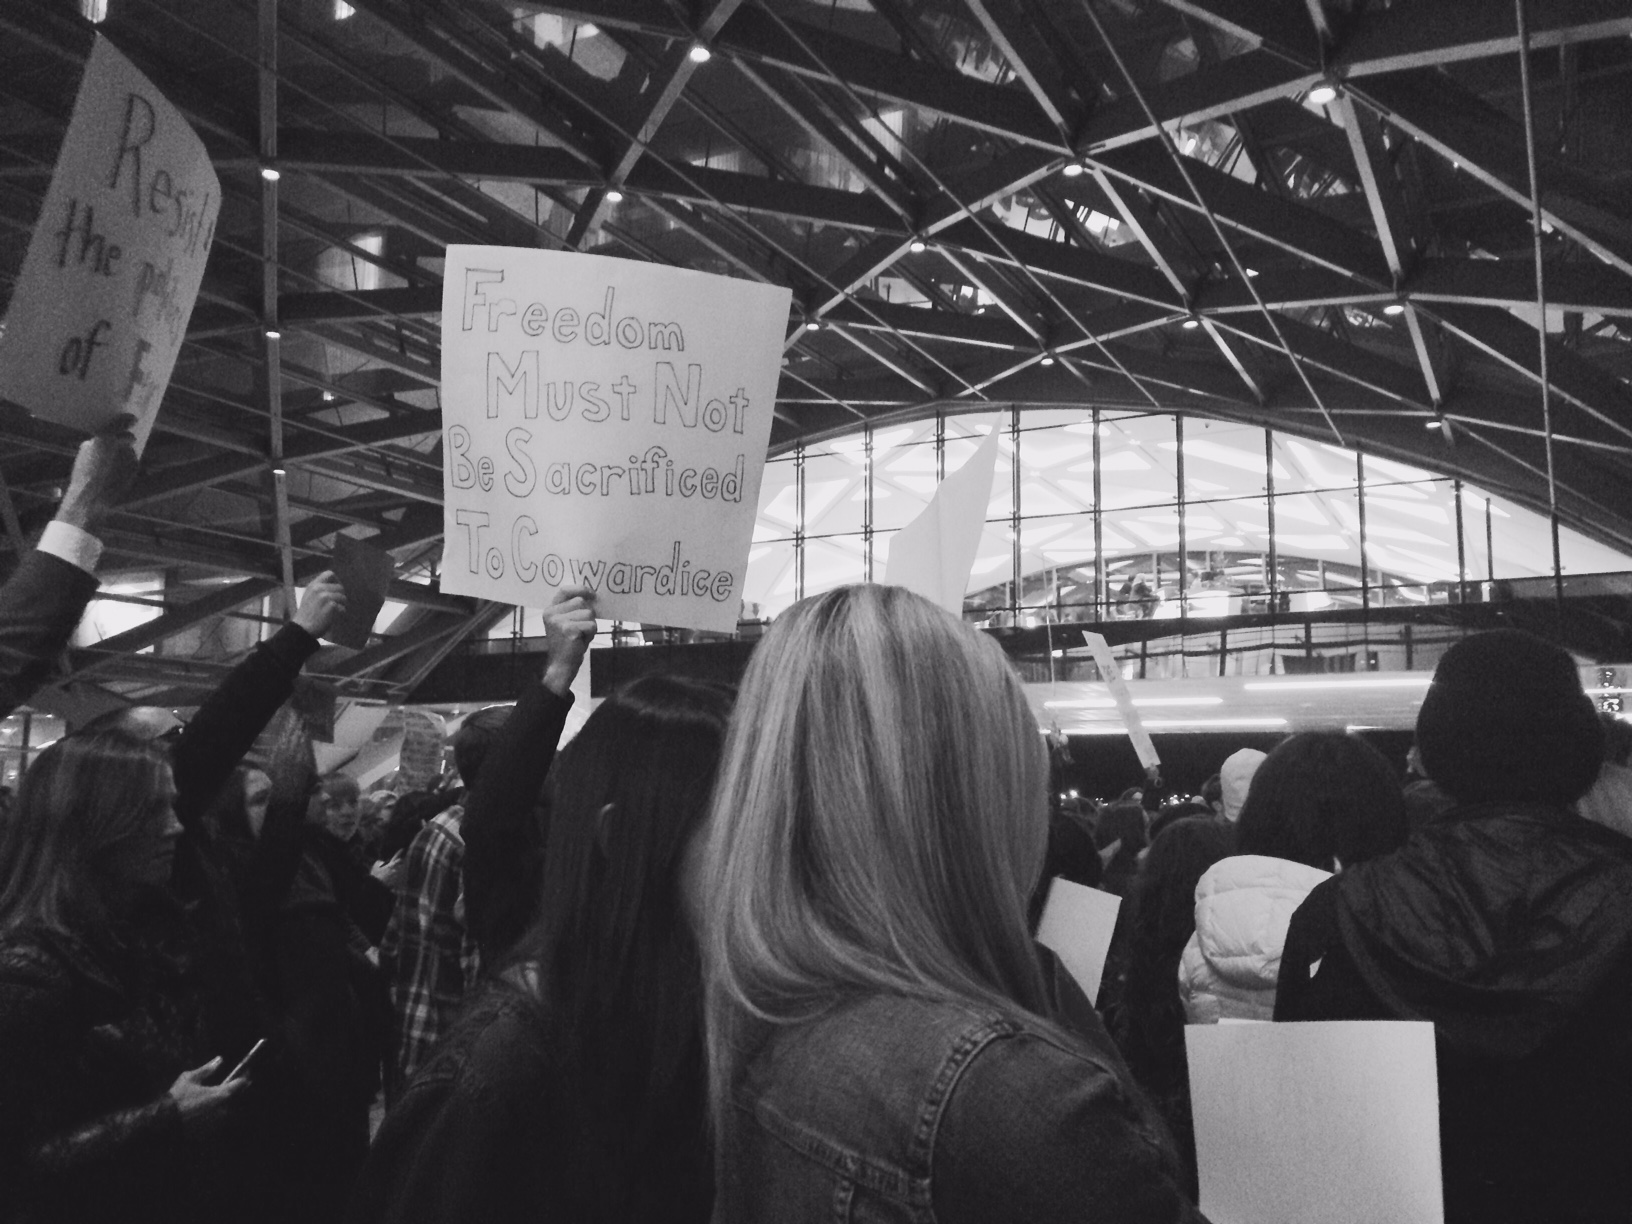 Resist
the
of
Freedom
Must Not
Be Sacrificed
To Cowardice